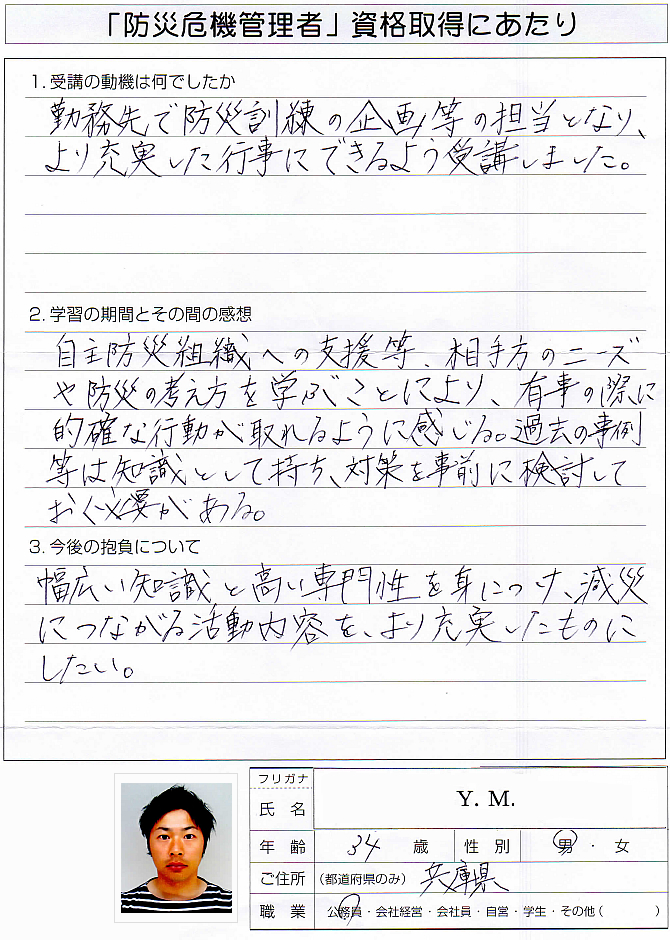 「防災危機管理者」資格取得にあたり
1. 受講の動機は何でしたか
勤務先で防災訓練の企画等の担当となり、
より充実した行事にできるよう受講しました。
2. 学習の期間とその間の感想
自主防災組織への支援等、相手方のニーズ
や防災の考え方を学ぶことにより、有事の際に
的確な行動が取れるように感じる。過去の事例
等は知識として持ち、対策を事前に検討して
おく必要がある。
3. 今後の抱負について
幅広い知識と高い専門性を身につけ、減災
につながる活動内容を、より充実したものに
したい。
フリガナ
氏 名 Y. M.
年 齢 34 歳 性 別 男 ・ 女
ご住所 (都道府県のみ) 兵庫県
職 業 公務員・会社経営・会社員・自営・学生・その他 ( )